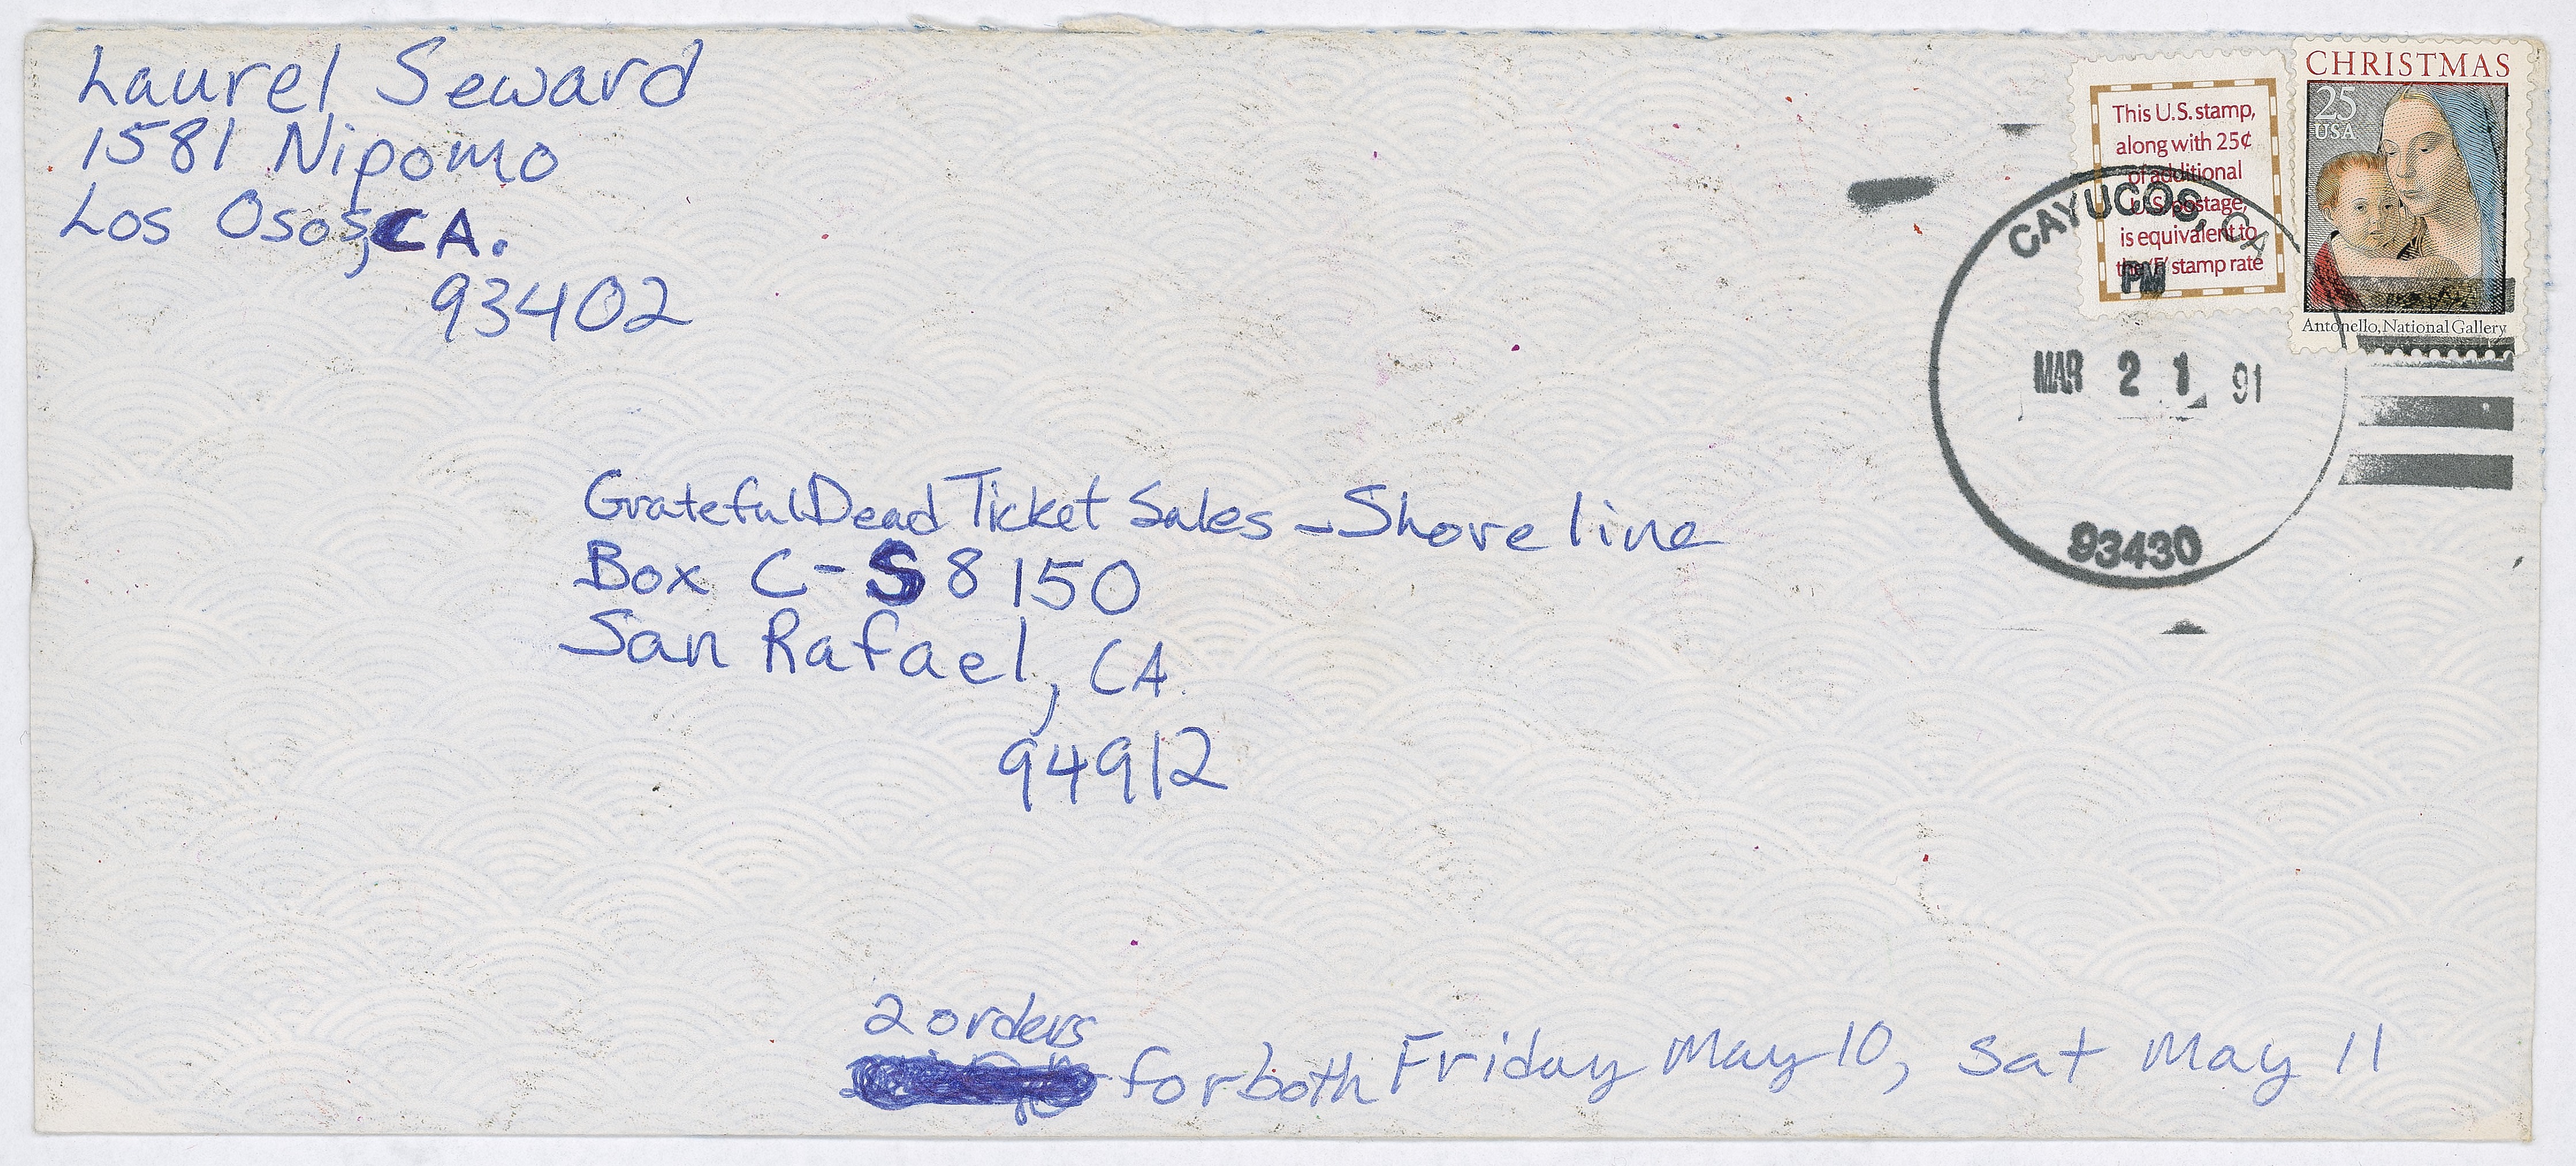 Laurel Seward
1581 Nipomo
Los Osos, CA.
93402
This U.S. stamp,
along with 25¢
of additional
U.S. postage,
is equivalent to
the 'F' stamp rate
CHRISTMAS
25
USA
Antonello, National Gallery
CAYUCOS, CA
PM
MAR 21 91
93430
Grateful Dead Ticket Sales - Shoreline
Box C-S 8150
San Rafael, CA
94912
2 orders
for both Friday May 10, Sat May 11